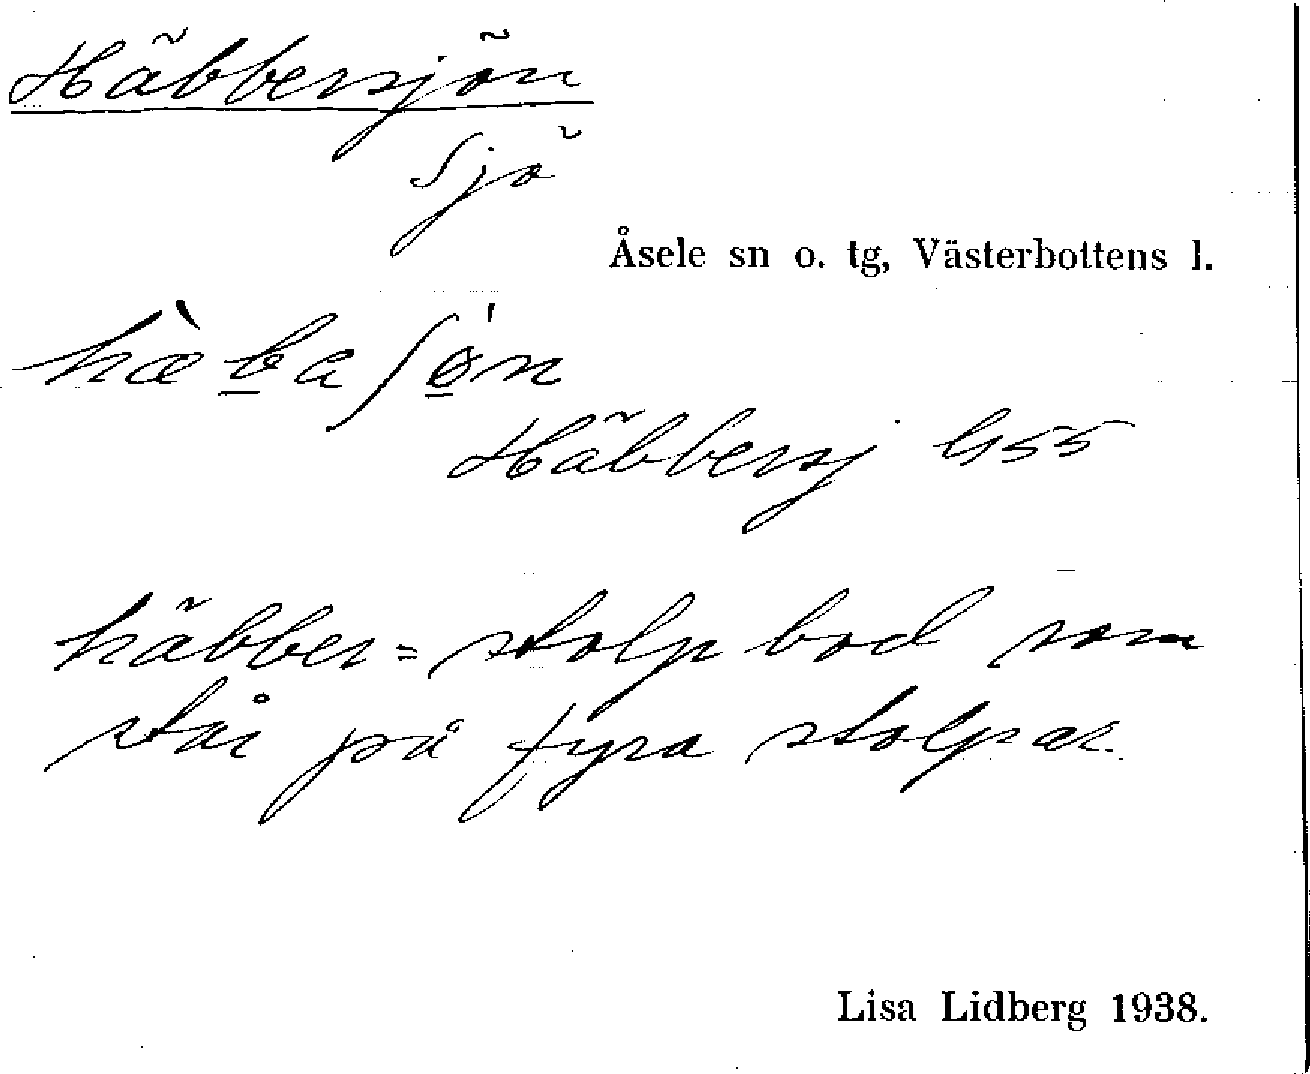 Häbbersjön
Sjö
Åsele sn o. tg, Västerbottens l.
hæ̀baʃø̍n
Häbbersj G55
häbber = stolpbod som
står på fyra stolpar.
Lisa Lidberg 1938.